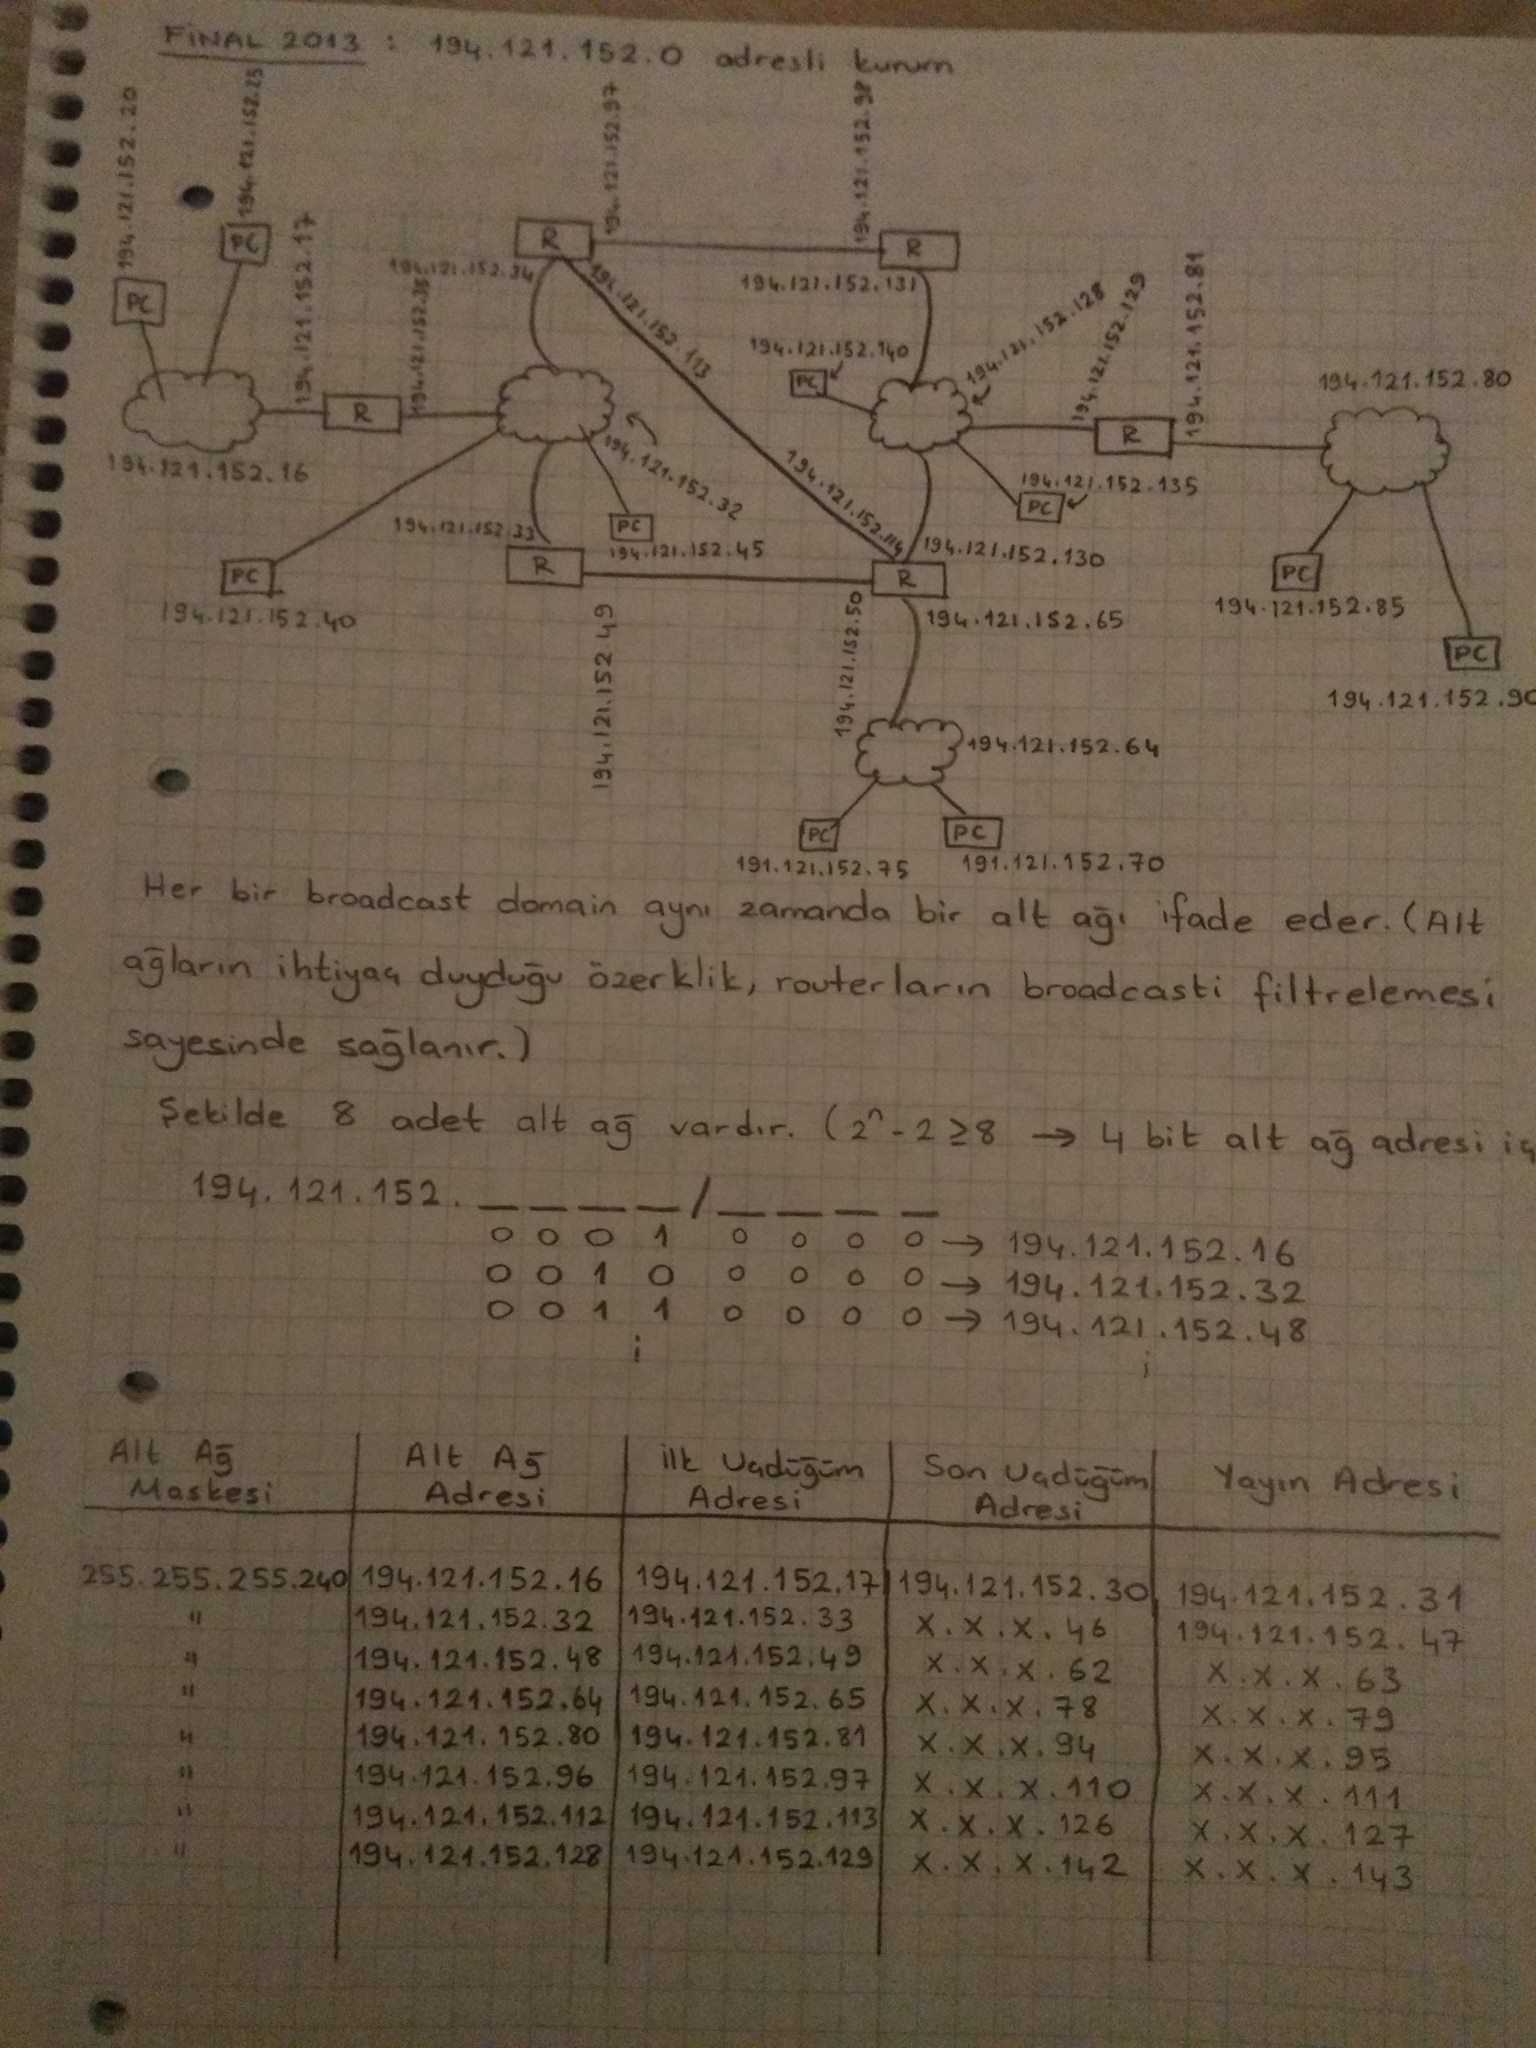 FİNAL 2013 : 194.121.152.0 adresli kurum
194.121.152.20
194.121.152.25
194.121.152.97
194.121.152.98
PC
PC
194.121.152.17
R
R
194.121.152.34
194.121.152.35
194.121.152.113
194.121.152.131
194.121.152.128
194.121.152.129
194.121.152.81
194.121.152.140
PC
194.121.152.80
R
R
194.121.152.16
194.121.152.32
194.121.152.114
194.121.152.135
PC
194.121.152.33
PC
194.121.152.45
194.121.152.130
R
R
PC
194.121.152.40
PC
194.121.152.85
194.121.152.49
194.121.152.50
194.121.152.65
PC
194.121.152.90
194.121.152.64
PC
PC
191.121.152.75
191.121.152.70
Her bir broadcast domain aynı zamanda bir alt ağı ifade eder. (Alt
ağların ihtiyaç duyduğu özerklik, routerların broadcasti filtrelemesi
sayesinde sağlanır.)
Şekilde 8 adet alt ağ vardır. (2^n - 2 ≥ 8 → 4 bit alt ağ adresi iç
194.121.152. _ _ _ _ / _ _ _ _
0 0 0 1 0 0 0 0 → 194.121.152.16
0 0 1 0 0 0 0 0 → 194.121.152.32
0 0 1 1 0 0 0 0 → 194.121.152.48
Alt Ağ Maskesi | Alt Ağ Adresi | İlk Uçdüğüm Adresi | Son Uçdüğüm Adresi | Yayın Adresi
255.255.255.240 | 194.121.152.16 | 194.121.152.17 | 194.121.152.30 | 194.121.152.31
" | 194.121.152.32 | 194.121.152.33 | X.X.X.46 | 194.121.152.47
" | 194.121.152.48 | 194.121.152.49 | X.X.X.62 | X.X.X.63
" | 194.121.152.64 | 194.121.152.65 | X.X.X.78 | X.X.X.79
" | 194.121.152.80 | 194.121.152.81 | X.X.X.94 | X.X.X.95
" | 194.121.152.96 | 194.121.152.97 | X.X.X.110 | X.X.X.111
" | 194.121.152.112 | 194.121.152.113 | X.X.X.126 | X.X.X.127
" | 194.121.152.128 | 194.121.152.129 | X.X.X.142 | X.X.X.143